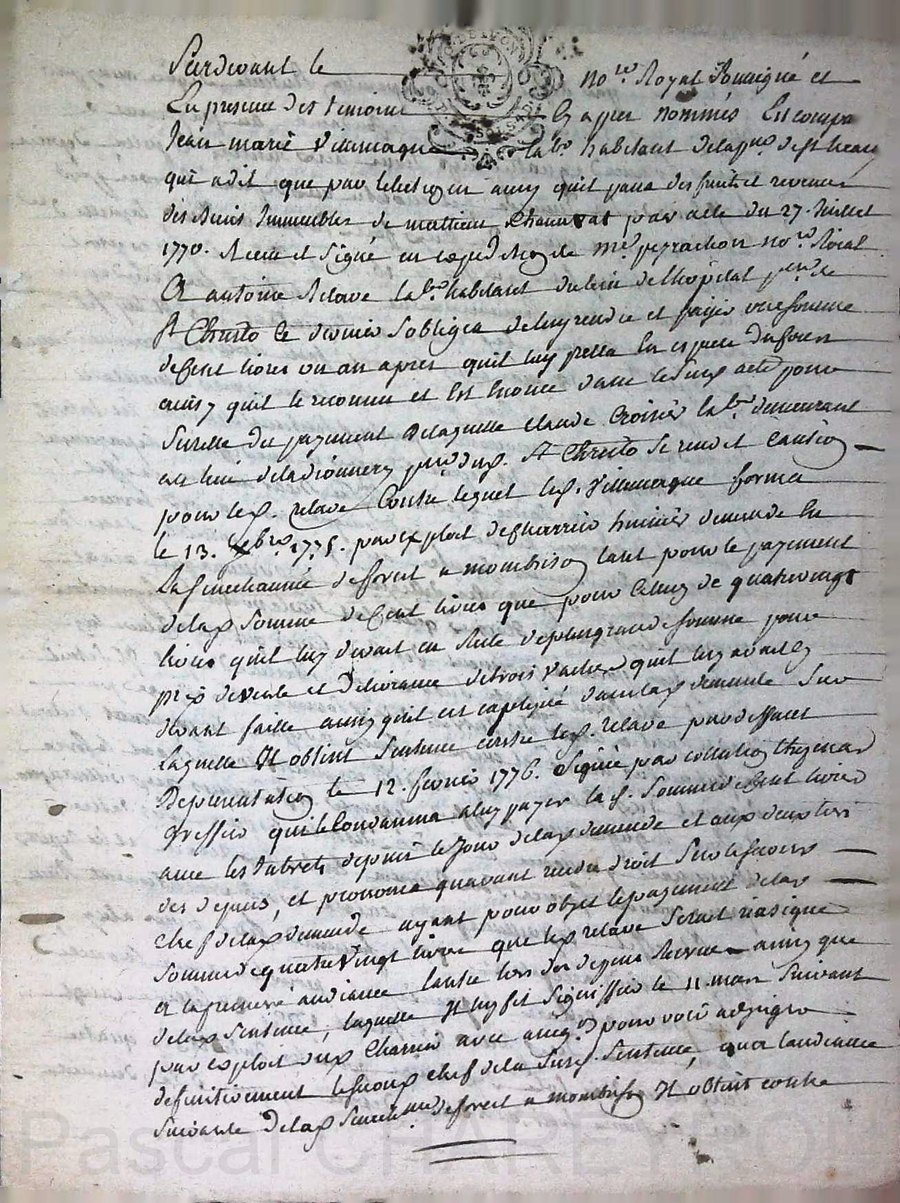 Pardevant le no.re Royal Soussigné et
En presence des temoins Cy apres nommés Est comparu
Jean marie Villemagne lab.r habitant de la p.sse de St
qui a dit que par subrogation aussy qu'il passa des fruits et revenus
des biens Immeubles de mathieu par acte du 27. Juillet
1770. Receu et Signé en expedition de me. peyrachon no.re Roial
A antoine Relave lab.r habitant du lieu de L'hôpital p.sse de
St Christo Ce dernier s'obligea de luy rendre et paijer une somme
de Cent livres un an après qu'il luy pretta En espece du cours
ainsy qu'il le reconnu et Est Enoncé dans led. acte pour
Surette du payement de laquelle Claude Croisier lab.r demeurant
au lieu de la p.sse dud. St Christo se rendit Caution
pour led. relave Contre lequel led. Villemagne forma
le 13. Xbre 1775. par exploit de Charrier huissier demande En
La Senechaussée de forest a montbrison tant pour le payement
de lad. Somme de Cent livres que pour Celuy de quatrevingt
livres qu'il luy devait en Reste de plus grande somme pour
prix de vente et delivrance de trois vaches qu'il luy avait cy
devant faitte ainsy qu'il est expliqué dans lad. demande Sur
Laquelle Il obtint Sentence contre led. relave par deffaut
De presentation le 12. fevrier 1776. Signée par collation
greffier qui le Condamna a luy payer lad. Somme de Cent livres
avec les Interets depuis le Jour de lad. demande et aux deux tiers
des depens, et prononça qu'avant rendre droit Sur le second
Chef de lad. demande ayant pour objet le payement de lad.
Somme de quatre Vingt livres que led. relave Serait reassigné
A la premiere audiance l'autre tiers des depens Reservé ainsy que
de lad. Sentence, laquelle Il luy fit Signiffier le 11 mars Suivant
par exploit dud. Charrier avec assig.on pour voir adjuger
definitivement le second Chef de la Susd. Sentence, qu'a l'audiance
Suivante de lad. Senechaussée de forest a montbrison Il obtint contre
Pascal CHAREYRON